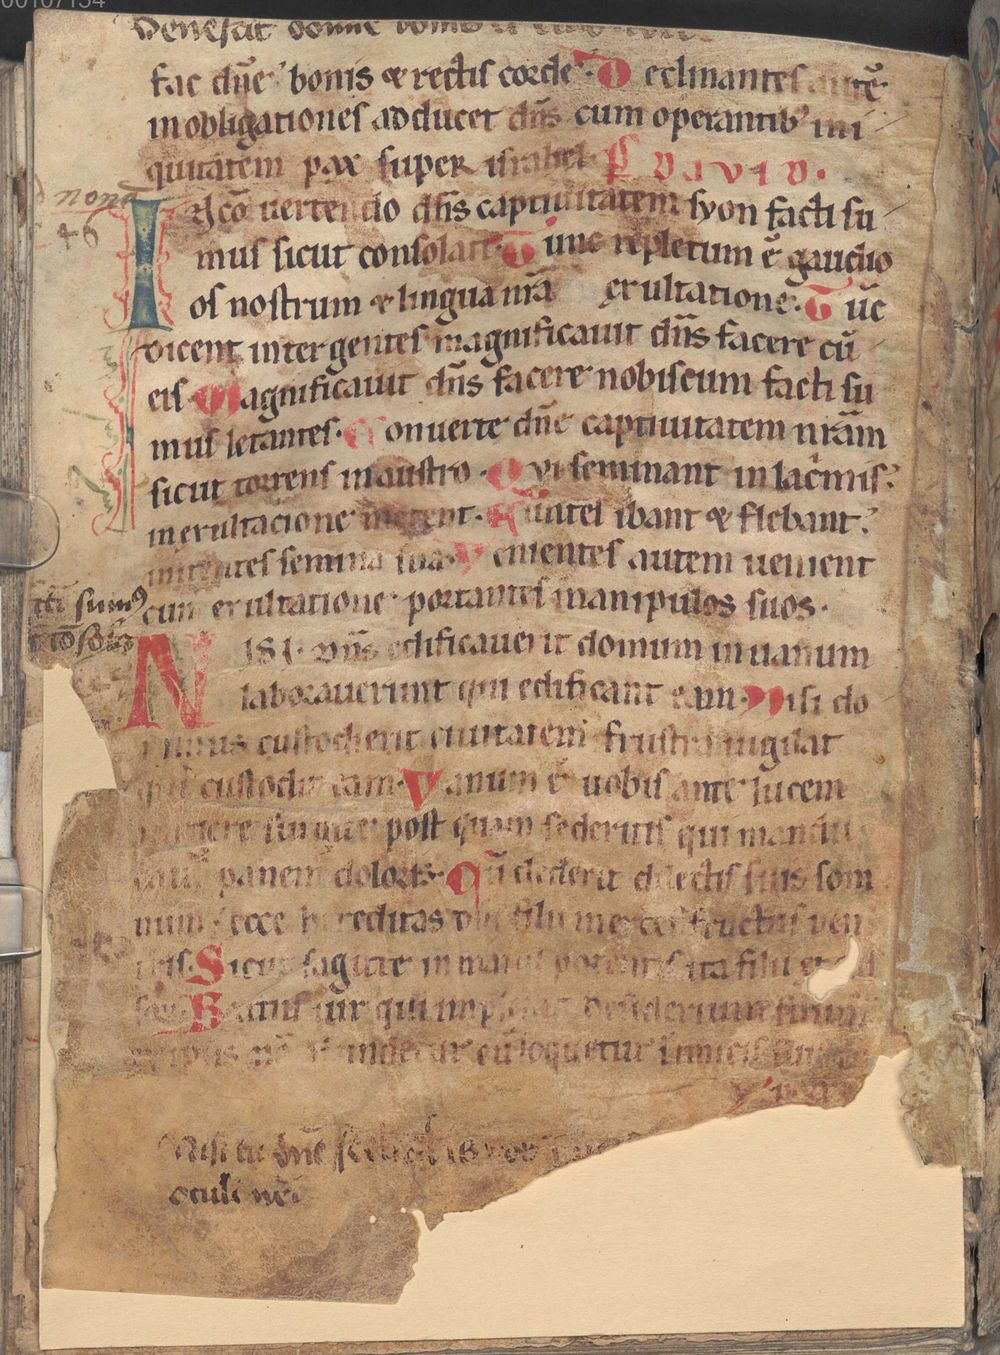 00107154
Benefac domine bonis et
fac dn̄e bonis & rectis corde Declinantes autē
in obligationes adducet dn̄s cum operantib' ini
quitatem pax super israhel P̄ David.
nona
46
In cōvertendo dn̄s captiuitatem syon facti su
mus sicut consolati Tunc repletum ē gaudio
os nostrum & lingua nr̄a exultatione. Tūc
dicent inter gentes magnificauit dn̄s facere cū
eis Magnificauit dn̄s facere nobiscum facti su
mus letantes. Conuerte dn̄e captiuitatem nr̄am
sicut torrens in austro. Qvi seminant in lac̄mis.
in exultacione metent. Euntes ibant & flebant.
mittentes semina sua Venientes autem uenient
facti sumus
sicut cōsolati
cum exultatione portantes manipulos suos.
NISI. Dn̄s edificauerit domum in uanum
laborauerunt qui edificant eam. Nisi do
minus custodierit ciuitatem frustra uigilat
qui custodit eam. Vanum ē uobis ante lucem
surgere surgite post quam sederitis qui mandu
catis panem doloris. Cū dederit dilectis suis som
num ecce hereditas dn̄i filii merces fructus ven
tris. Sicut sagitte in manu potentis ita filii excus
sor. Beatus uir qui impleuit desiderium suum
ex ipsis nō confundetur cū loquetur inimicis suis
Nisi tu dn̄e
oculi mei